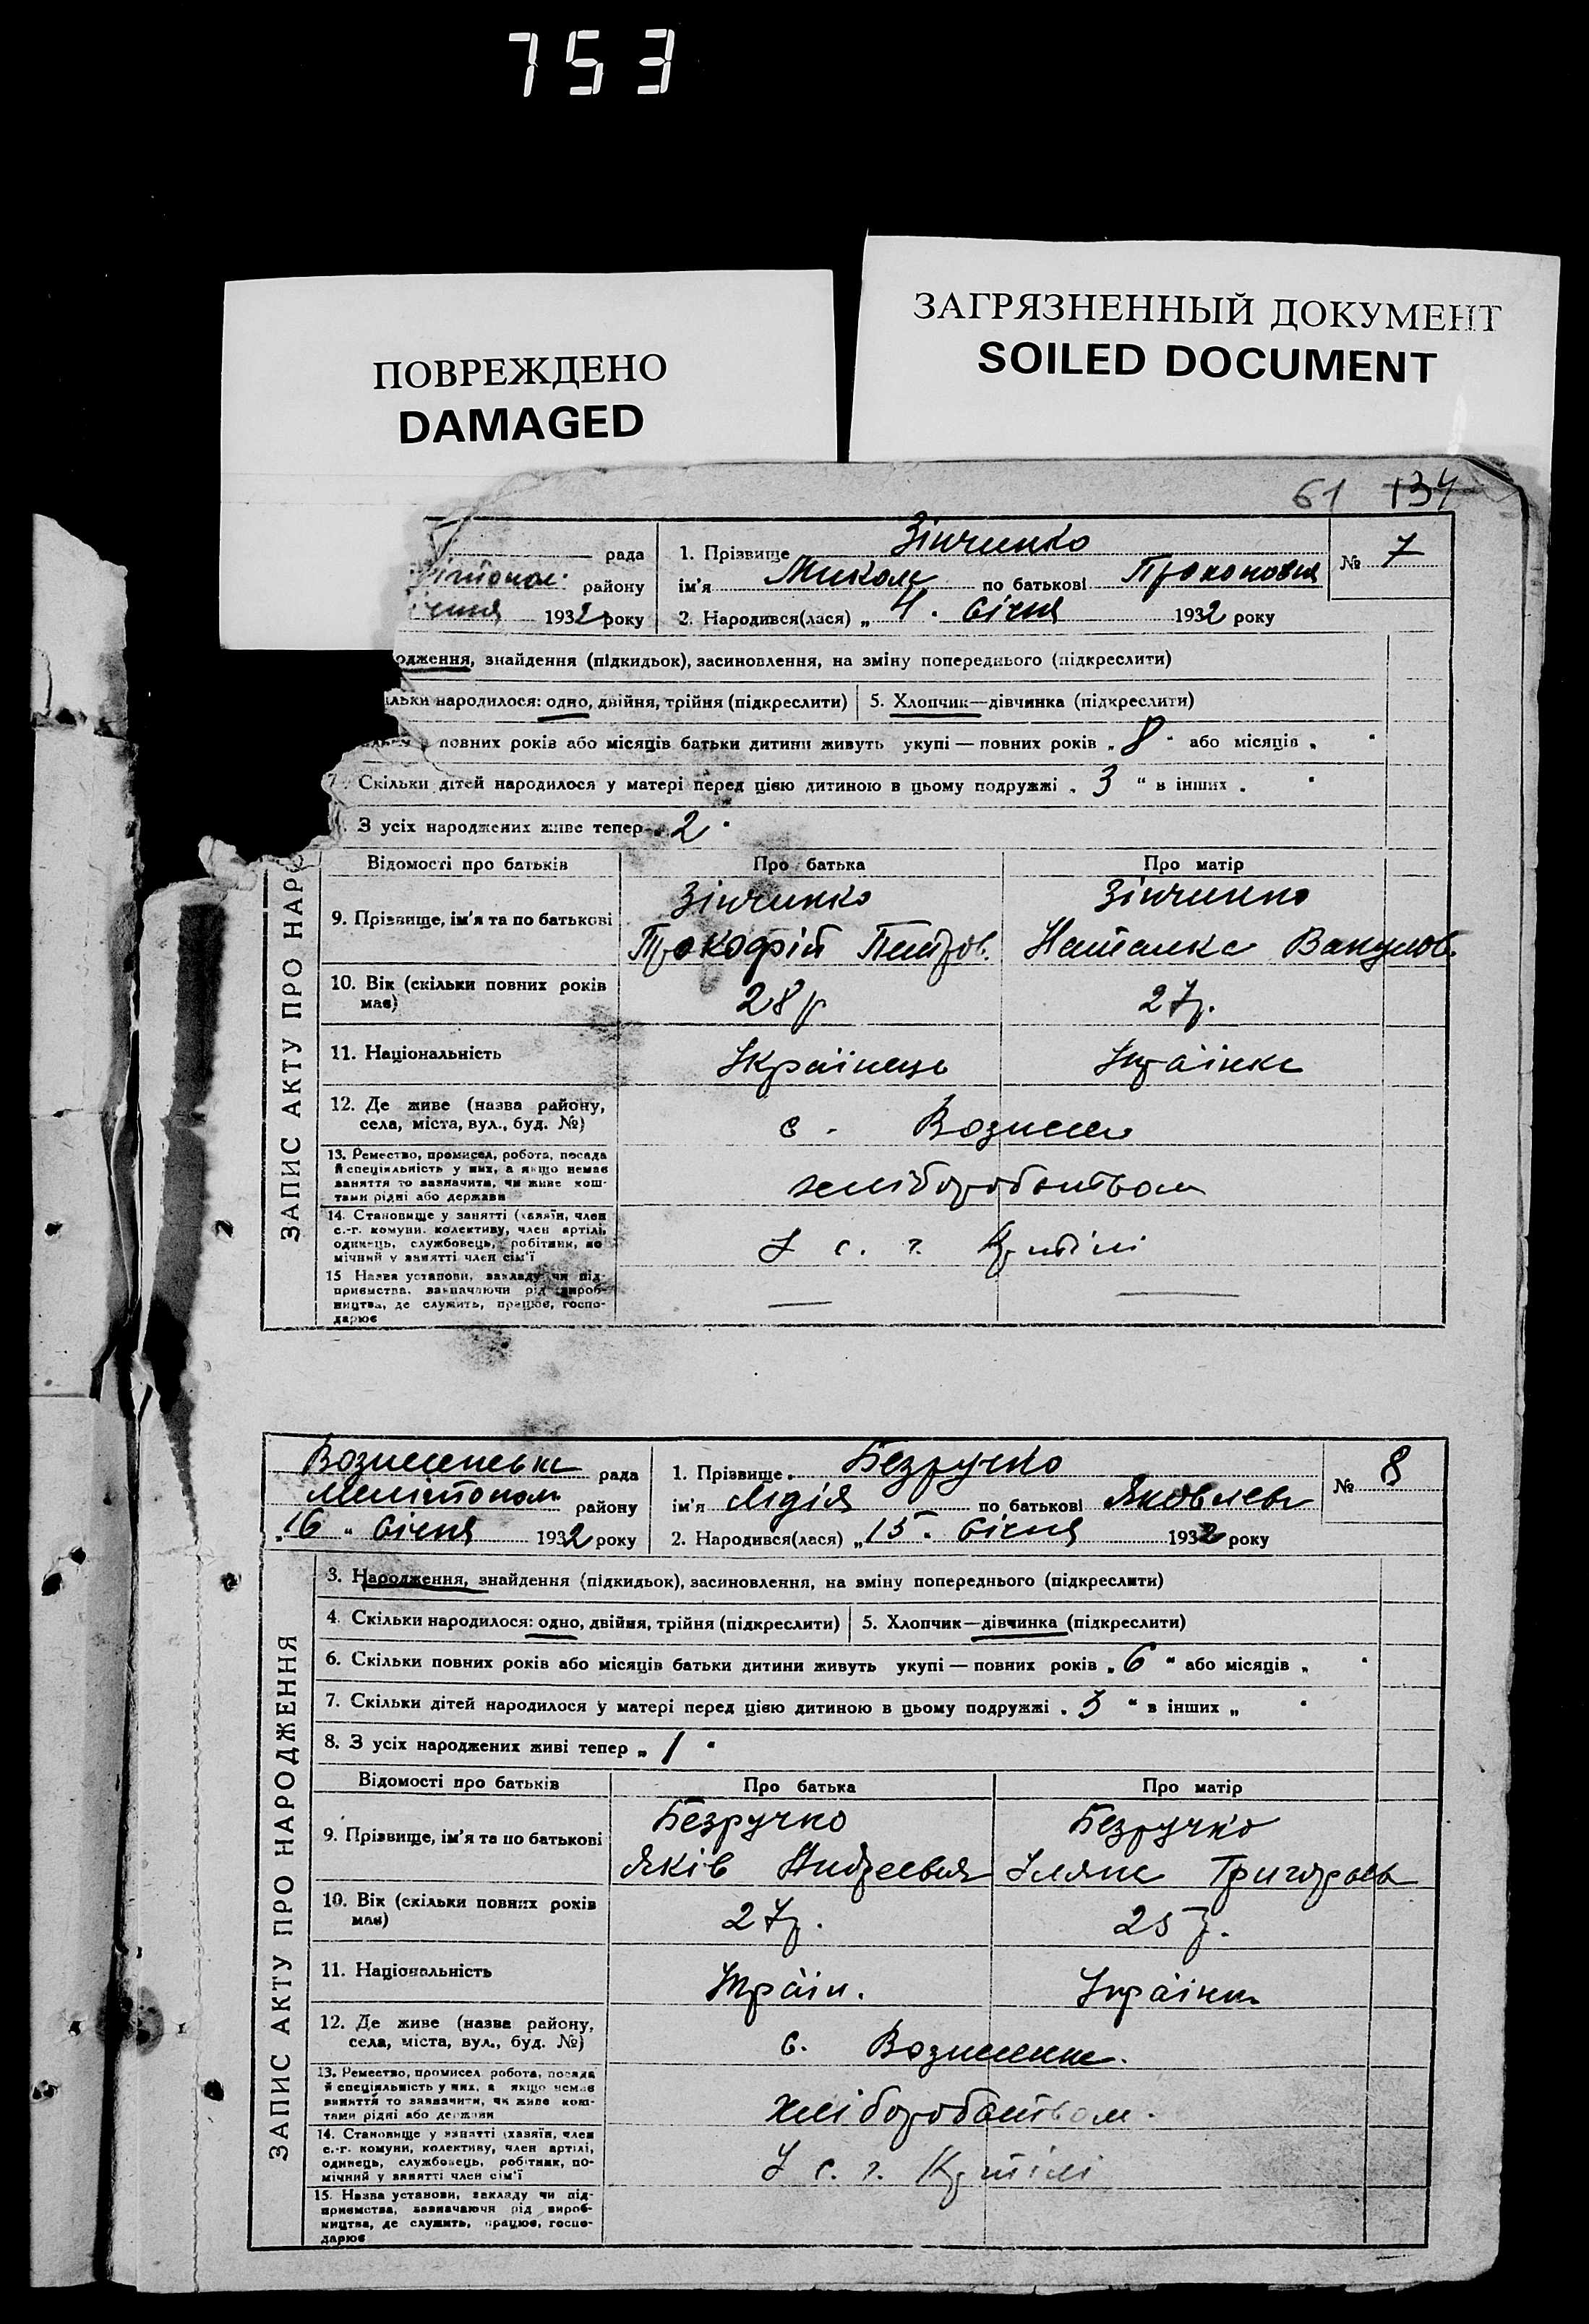 753
ПОВРЕЖДЕНО
DAMAGED
ЗАГРЯЗНЕННЫЙ ДОКУМЕНТ
SOILED DOCUMENT
61 134
рада
району
1932 року
1. Прізвище Зінченко
ім'я Микола по батькові
2. Народився(лася) „4" січня 1932 року
№ 7
одження, знайдення (підкидьок), засиновлення, на зміну попереднього (підкреслити)
ільки народилося: одно, двійня, трійня (підкреслити)
5. Хлопчик—дівчинка (підкреслити)
повних років або місяців батьки дитини живуть укупі — повних років „8" або місяців „ "
7. Скільки дітей народилося у матері перед цією дитиною в цьому подружжі „3" в інших „ "
З усіх народжених живе тепер „2"
ЗАПИС АКТУ ПРО НАР
Відомості про батьків
Про батька
Про матір
9. Прізвище, ім'я та по батькові
Зінченко
Прокофій Петров.
Зінченко
Наталка Вакулов.
10. Вік (скільки повних років
має)
28 р
27 р.
11. Національність
Українець
Українка
12. Де живе (назва району,
села, міста, вул., буд. №)
с. Вознесен
13. Ремество, промисел, робота, посада
й спеціяльність у них, а якщо немає
заняття то зазначити, чи живе кош-
тами рідні або держави
хліборобством
14. Становище у занятті (хазяїн, член
с.-г. комуни, колективу, член артілі,
одинець, службовець, робітник, по
мічний у занятті член сім'ї
У с. г. Артілі
15 Назва установи, закладу чи під-
приємства, зазначаючи рід вироб-
ництва, де служить, працює, госпо-
дарює
Вознесенська рада
Мелітопол. району
„16" січня 1932 року
1. Прізвище Безручко
ім'я Лідія по батькові Яковлевн
2. Народився(лася) „15" січня 1932 року
№ 8
ЗАПИС АКТУ ПРО НАРОДЖЕННЯ
3. Народження, знайдення (підкидьок), засиновлення, на зміну попереднього (підкреслити)
4. Скільки народилося: одно, двійня, трійня (підкреслити)
5. Хлопчик—дівчинка (підкреслити)
6. Скільки повних років або місяців батьки дитини живуть укупі — повних років „6" або місяців „ "
7. Скільки дітей народилося у матері перед цією дитиною в цьому подружжі „3" в інших „ "
8. З усіх народжених живі тепер „1"
Відомості про батьків
Про батька
Про матір
9. Прізвище, ім'я та по батькові
Безручко
Яків Андреевич
Безручко
Уляна Григорьев
10. Вік (скільки повних років
має)
27 р.
25 р.
11. Національність
Україн.
Українка
12. Де живе (назва району,
села, міста, вул., буд. №)
с. Вознесенка.
13. Ремество, промисел робота, посада
й спеціяльність у них, а якщо немає
заняття то зазначити, чи живе кош-
тами рідні або держави
хліборобством.
14. Становище у занятті (хазяїн, член
с.-г. комуни, колективу, член артілі,
одинець, службовець, робітник, по-
мічний у занятті член сім'ї
У с. г. Артілі
15. Назва установи, закладу чи під-
приємства, зазначаючи рід вироб-
ництва, де служить, працює, госпо-
дарює